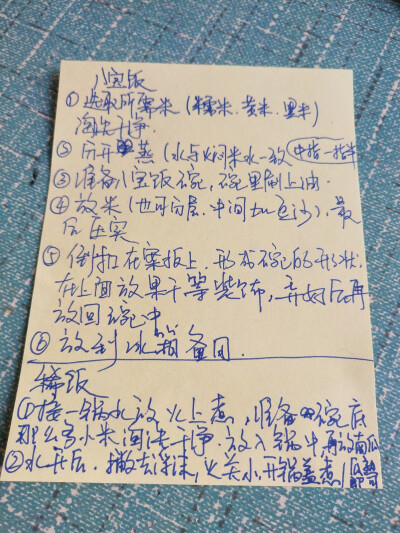 八宝饭
① 选取所需米（糯米.黄米.黑米）
淘洗干净.
② 分开蒸（水与焖米水一致 中指一指半
③ 准备八宝饭碗，碗里刷上油.
④ 放米（也可分层.中间加豆沙）.最
后压实
⑤ 倒扣在案板上.形成碗的形状，
在上面放果干等装饰，弄好后再
放回碗中
⑥ 放到冰箱备用.
稀饭
① 接一锅水放火上煮，准备碗底
那么多小米淘洗干净.放入锅中再放南瓜
② 水开后.撇去浮沫，火关小.开锅盖煮